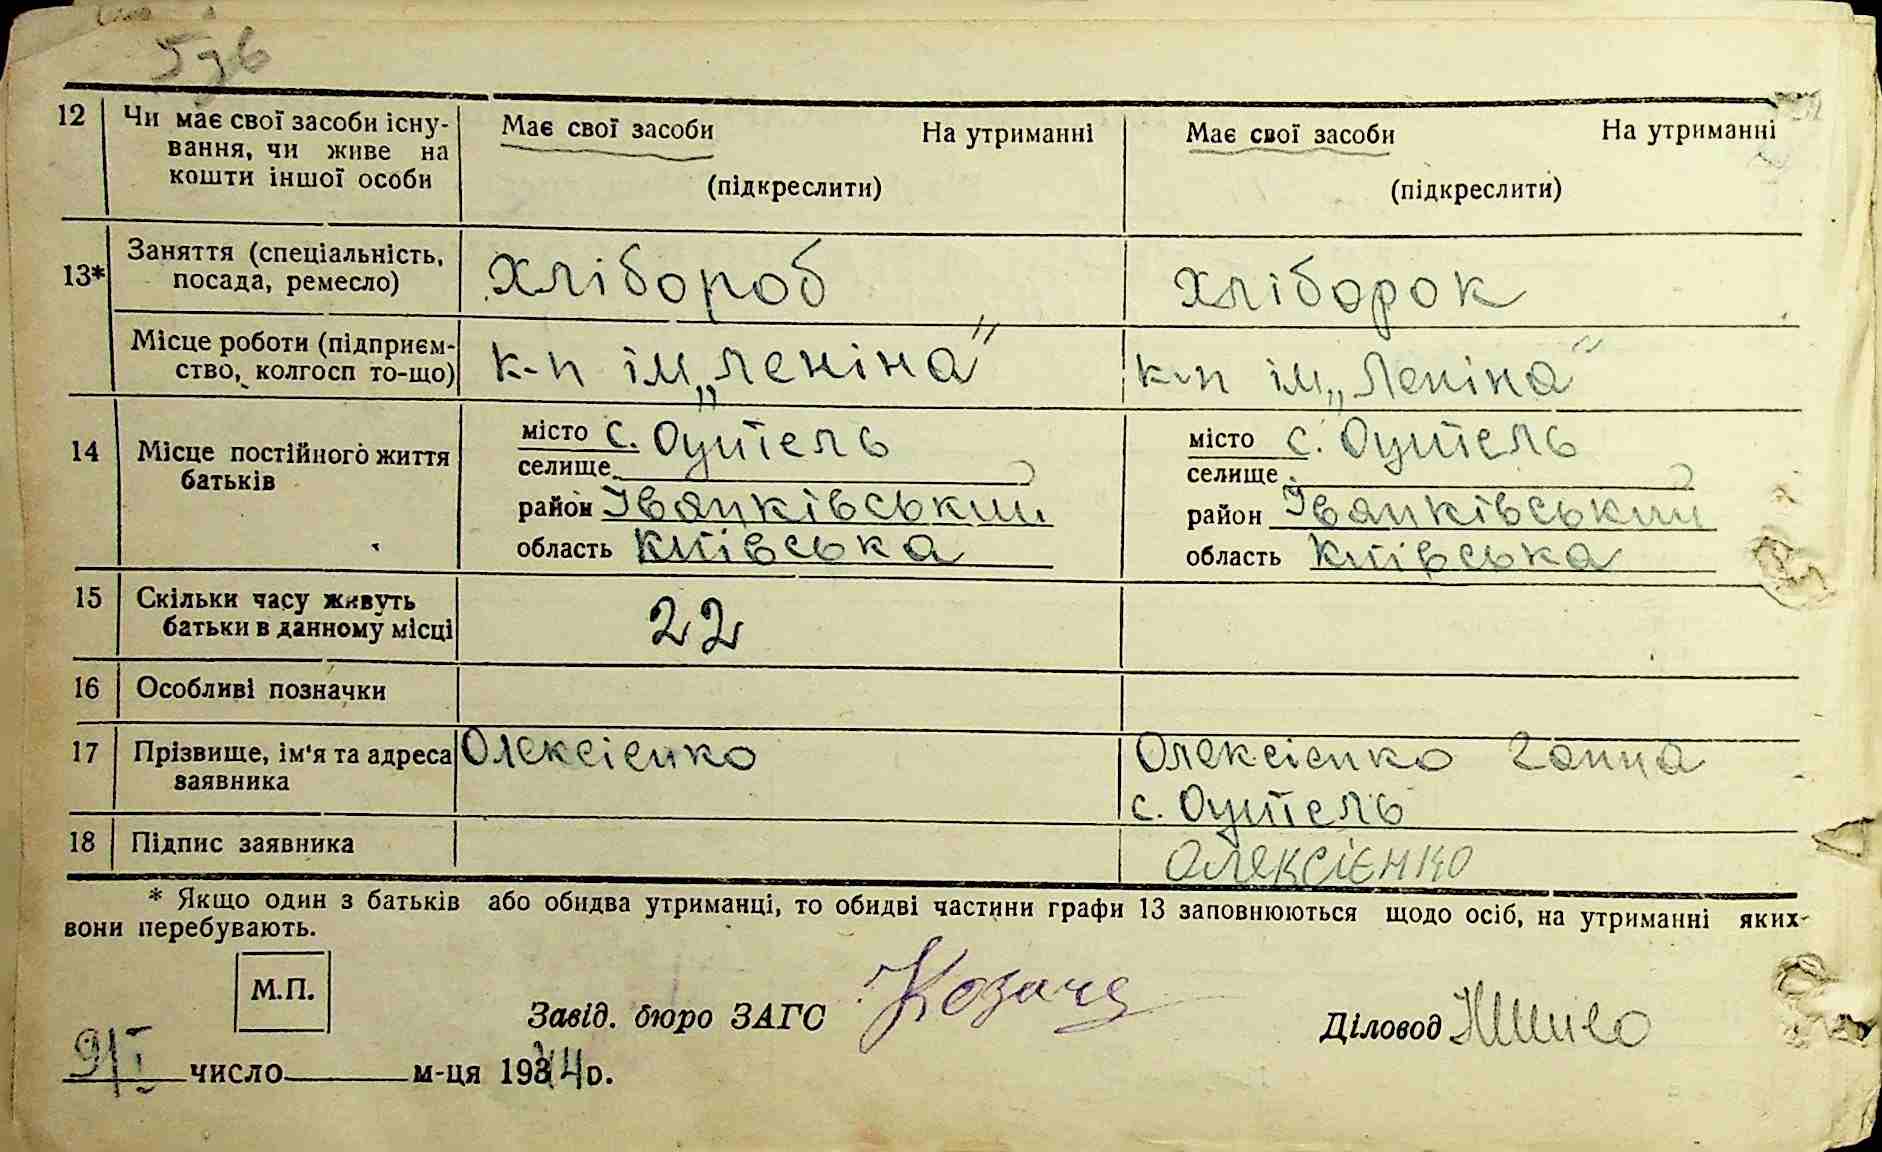 12 Чи має свої засоби існу- Має свої засоби На утриманні Має свої засоби На утриманні
вання, чи живе на
кошти іншої особи (підкреслити) (підкреслити)
13* Заняття (спеціальність, хлібороб хліборок
посада, ремесло)
Місце роботи (підприєм- к-п ім „Леніна" к-п ім „Леніна"
ство, колгосп то-що)
14 Місце постійного життя місто с. Оцитель місто с. Оцитель
батьків селище селище
район Іванківський район Іванківський
область Київська область Київська
15 Скільки часу живуть 22
батьки в данному місці
16 Особливі позначки
17 Прізвище, ім'я та адреса Олексієнко Олексієнко Ганна
заявника с. Оцитель
18 Підпис заявника Олексієнко
* Якщо один з батьків або обидва утриманці, то обидві частини графи 13 заповнюються щодо осіб, на утриманні яких
вони перебувають.
М.П.
Завід. бюро ЗАГС Діловод
9/I число м-ця 194 р.